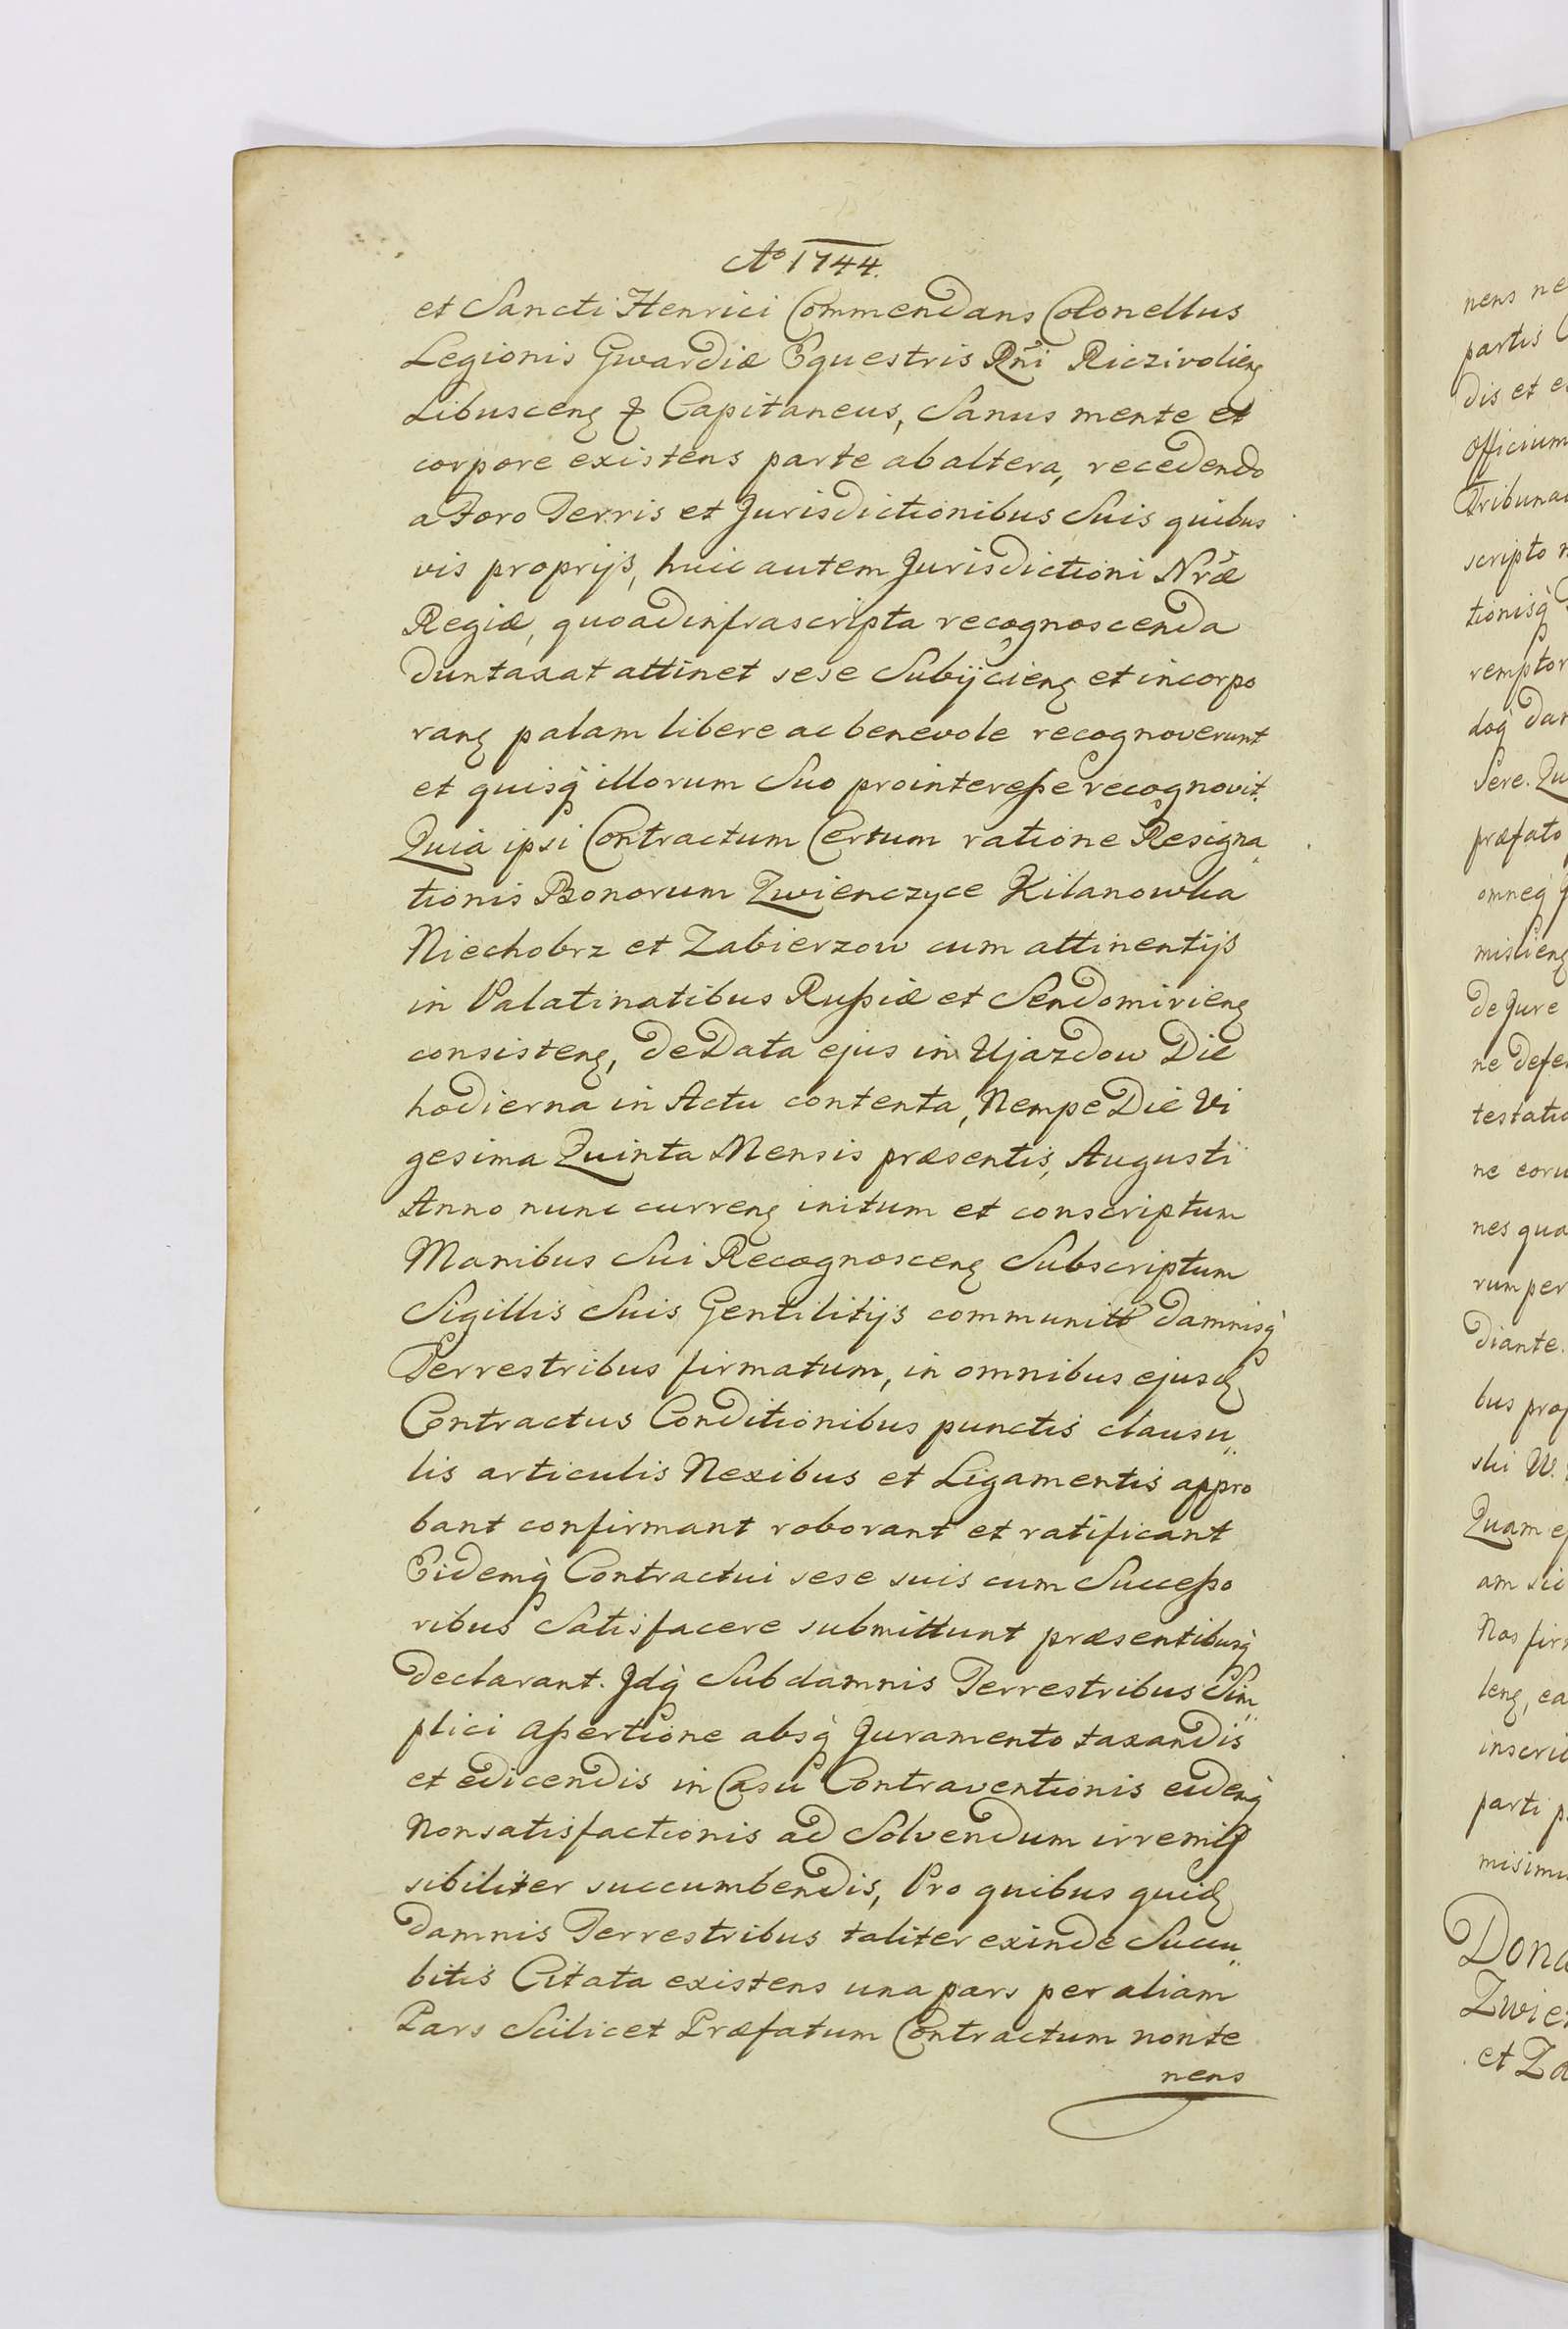 Aº 1744.
et Sancti Henrici Commendans Colonellus
Legionis Gwardiæ Equestris Rñi Riczivolieñ
Libusceñ & Capitaneus, Sanus mente et
corpore existens parte ab altera, recedendo
a Foro Terris et Jurisdictionibus Suis quibus
vis proprijs, huic autem Jurisdictioni Nræ
Regiæ, quoad infrascripta recognoscenda
duntaxat attinet sese Subijcieñ et incorpo
rañ palam libere ac benevole recognoverunt
et quisq́ illorum Suo prointereſse recognovit.
Quia ipsi Contractum Certum ratione Resigna
tionis Bonorum Zwienczyce Kilanowka
Niechobrz et Zabierzow cum attinentijs
in Palatinatibus Ruſsiæ et Sendomirieñ
consisteñ, de Data ejus in Ujazdow Die
hodierna in Actu contenta, Nempe Die Vi
gesima Quinta Mensis præsentis, Augusti
Anno nunc curreñ initum et conscriptum
Manibus Sui Recognosceñ Subscriptum
Sigillis Suis Gentilitijs communitt damnisq́
Terrestribus firmatum, in omnibus ejusd
Contractus Conditionibus punctis clausu„
lis articulis Nexibus et Ligamentis appro
bant confirmant roborant et ratificant
Eidemq́ Contractui sese suis cum Succeſso
ribus Satisfacere submittunt præsentibusq́
declarant. Jdq́ Sub damnis Terrestribus Sim„
plici aſsertione absq́ Juramento taxandis
et edicendis in Casu Contraventionis eidemq́
Nonsatisfactionis ad Solvendum irremiſ
sibiliter succumbendis, Pro quibus quid
damnis Terrestribus taliter exinde Succu„
bitis Citata existens una pars per aliam
Pars Scilicet Præfatum Contractum nonte
nens
nens ne
partis
dis et e
officium
Tribuna
scripto n
tionisq́
rempto
doq́ dan
sere. Qu
præfato
omneq́
mislieñ
de Jure
ne defe
testatio
ne eoru
nes qua
rum per
diante.
bus prop
ski W.
Quam e
am sic
Nos firm
leñ, ea
inscri
parti p
misimu
Dona
Zwie
et Za